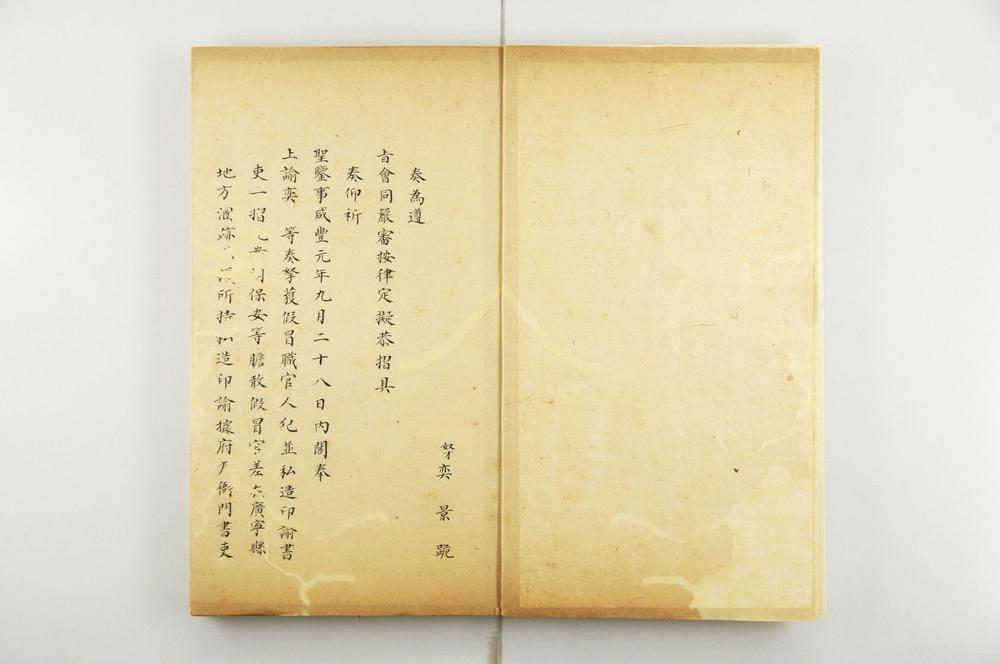 奴才奕 景 跪
奏為遵
旨會同嚴審按律定擬恭摺具
奏仰祈
聖鑒事咸豐元年九月二十八日內閣奉
上諭奕 等奏拏獲假冒職官人犯並私造印諭書
吏一摺 保安等膽敢假冒官差在廣寧縣
地方溷跡 所持私造印諭據府尹衙門書吏